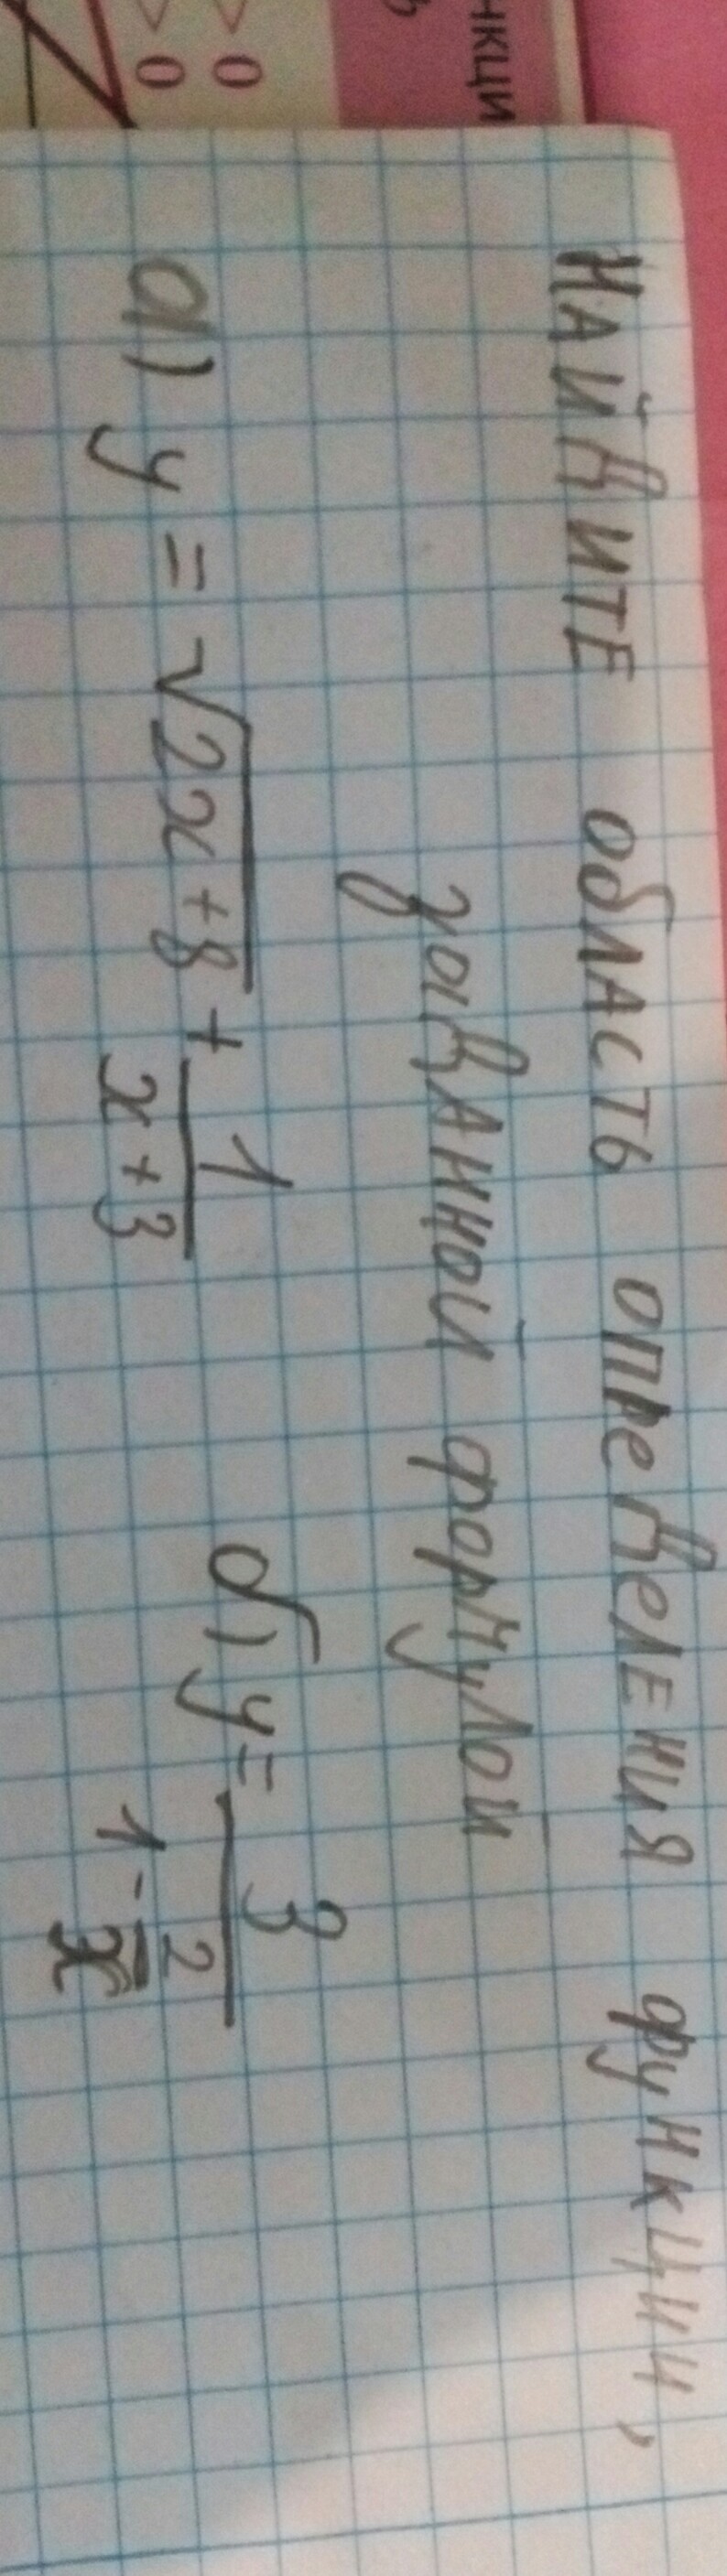 НКЦИ
> 0
> 0
НАЙДИТЕ ОБЛАСТЬ ОПРЕДЕЛЕНИЯ ФУНКЦИИ,
ЗАДАННОЙ ФОРМУЛОЙ
а) y = √(2x + 8) + 1/(x + 3)
б) y = 3/(1 - 2/x)